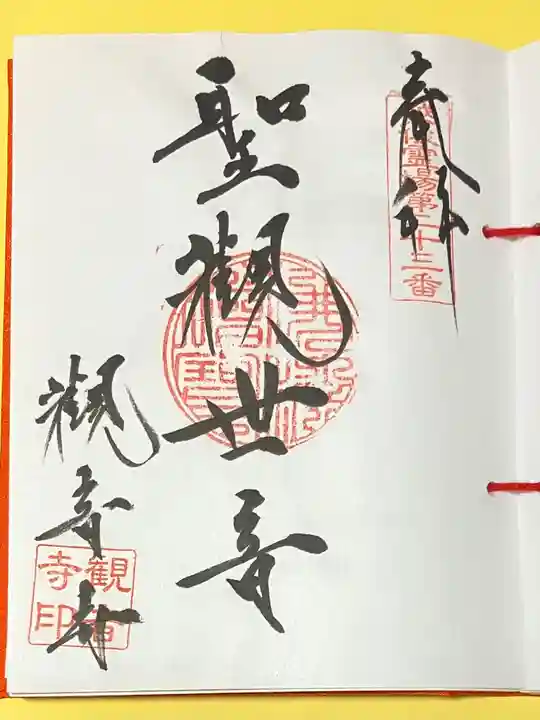 奉拝
霊場第二十三番
聖觀世音
觀音寺
観音寺印